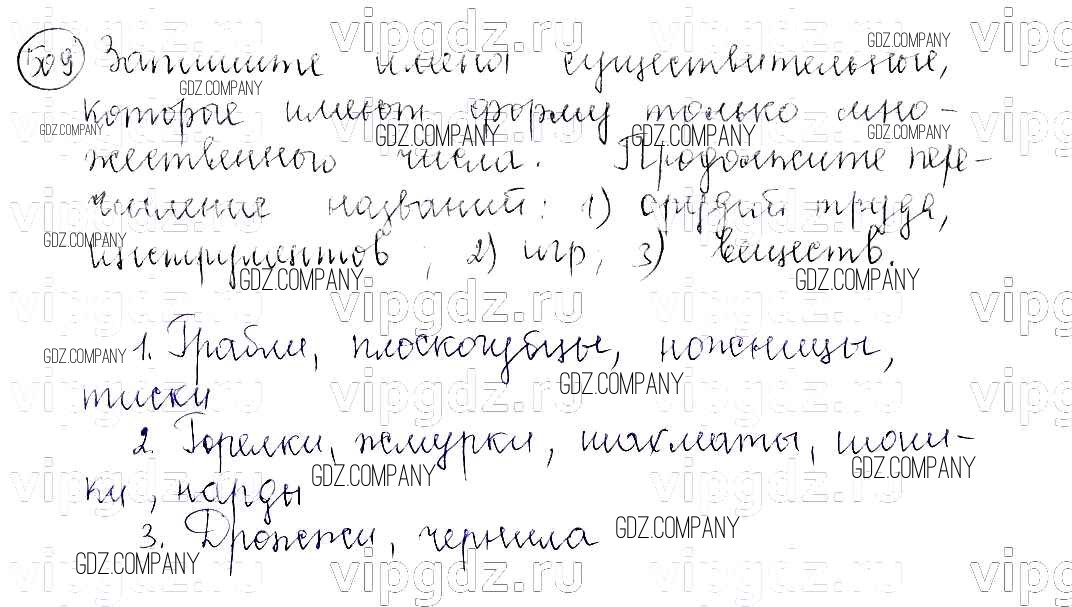 509 Запишите имена существительные,
которые имеют форму только мно-
жественного числа. Продолжите пере-
числение названий: 1) орудий труда,
инструментов; 2) игр; 3) веществ.
1. Грабли, плоскогубцы, ножницы,
тиски
2. Горелки, жмурки, шахматы, шаш-
ки, нарды
3. Дрожжи, чернила